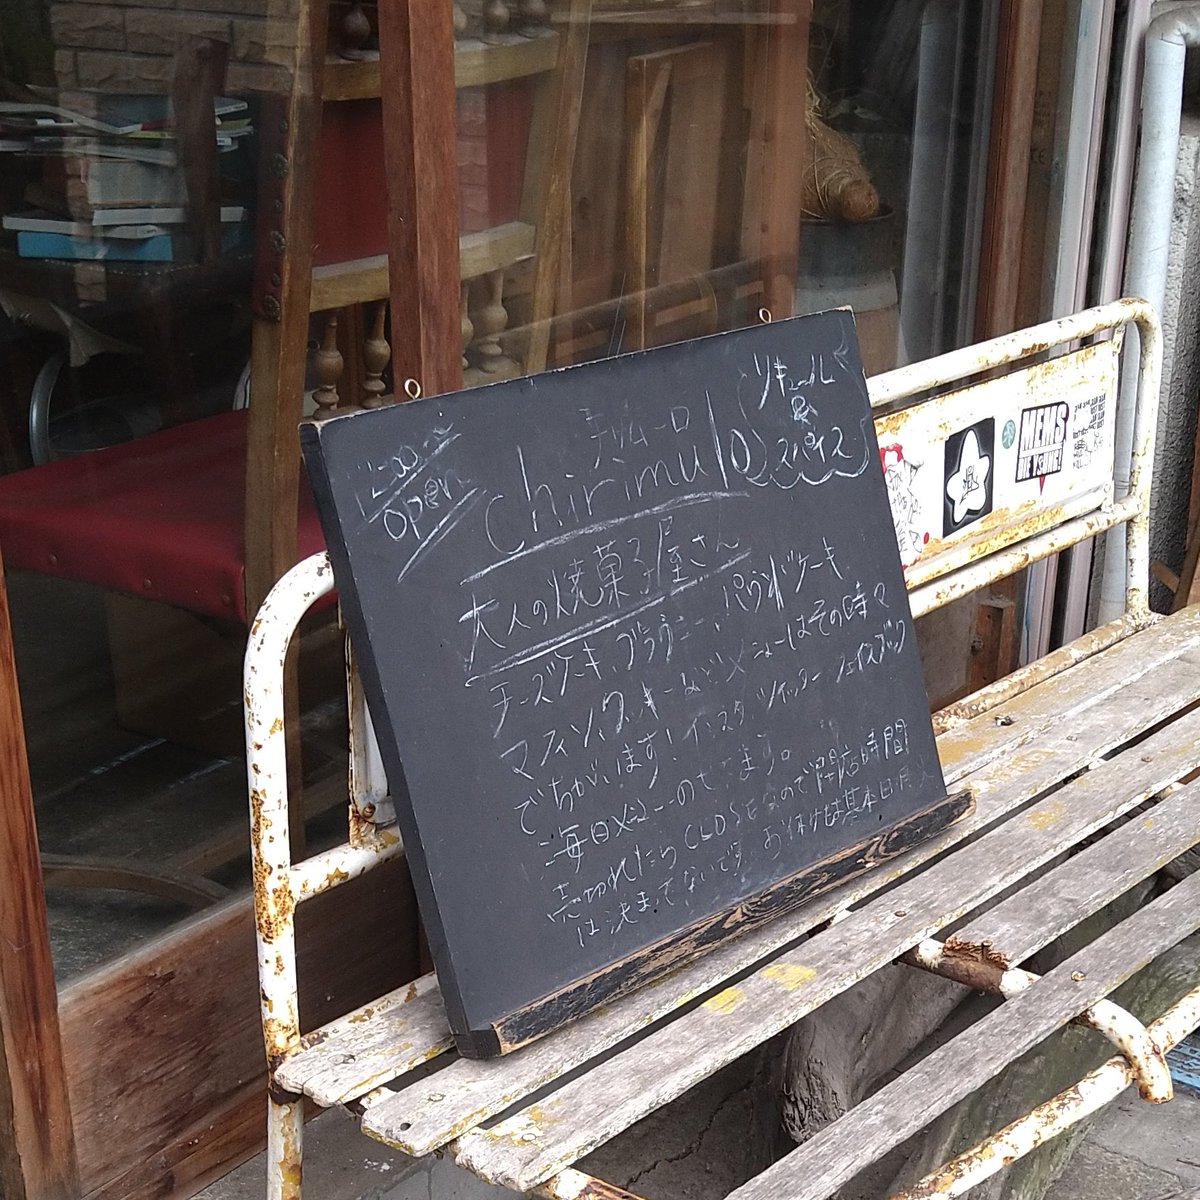 12:00〜
open
チリムーロ
chirimulo
リキュール
&
スパイス
大人の焼菓子屋さん
チーズケーキ、ブラウニー、パウンドケーキ
マフィン、クッキーなどメニューはその時々
でちがいます！インスタ、ツイッター、フェイスブック
に毎日メニューのせてます。
売切れたらCLOSEなので閉店時間
は決まってないです。お休みは基本日月火
MEMS
DIE YOUNG!